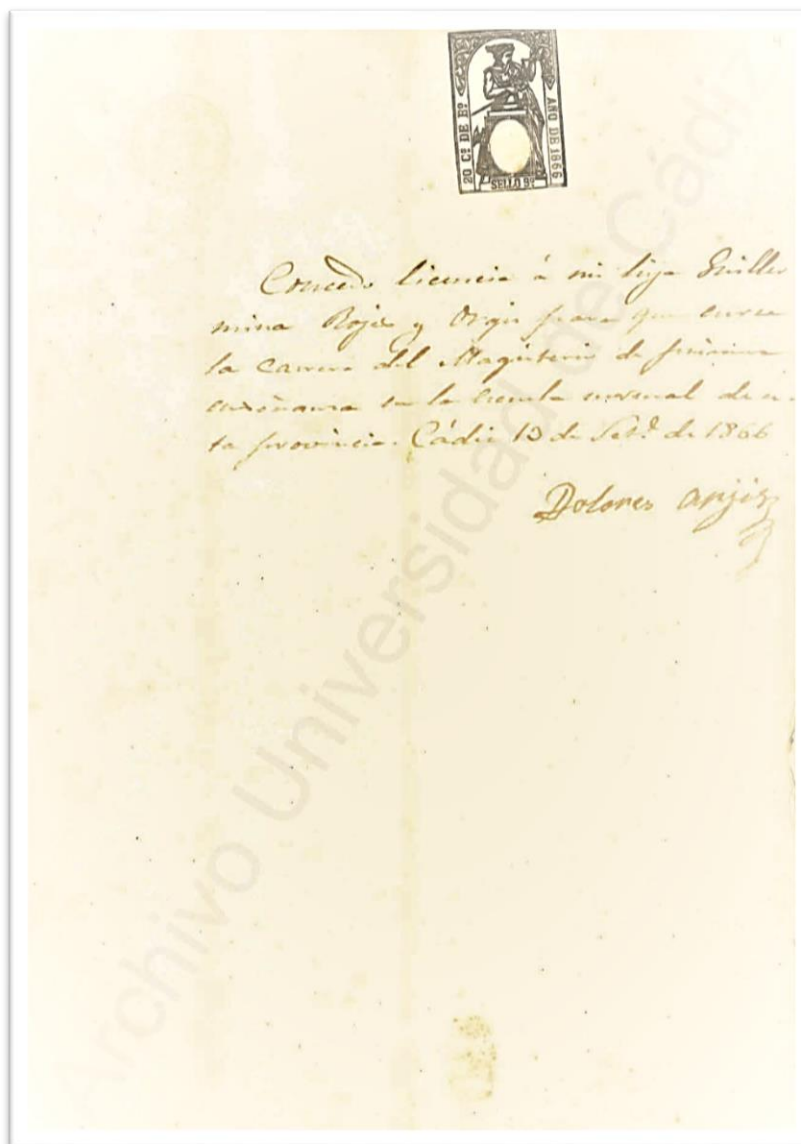 20 Cs DE Eo
AÑO DE 1866
SELLO 9º
Concedo licencia á mi hija Guiller
mina Rojas y Orgis para que curse
la carrera del Magisterio de primera
enseñanza en la Escuela normal de es-
ta provincia. Cádiz 13 de Set.e de 1866
Dolores Orgis
Archivo Universidad de Cádiz